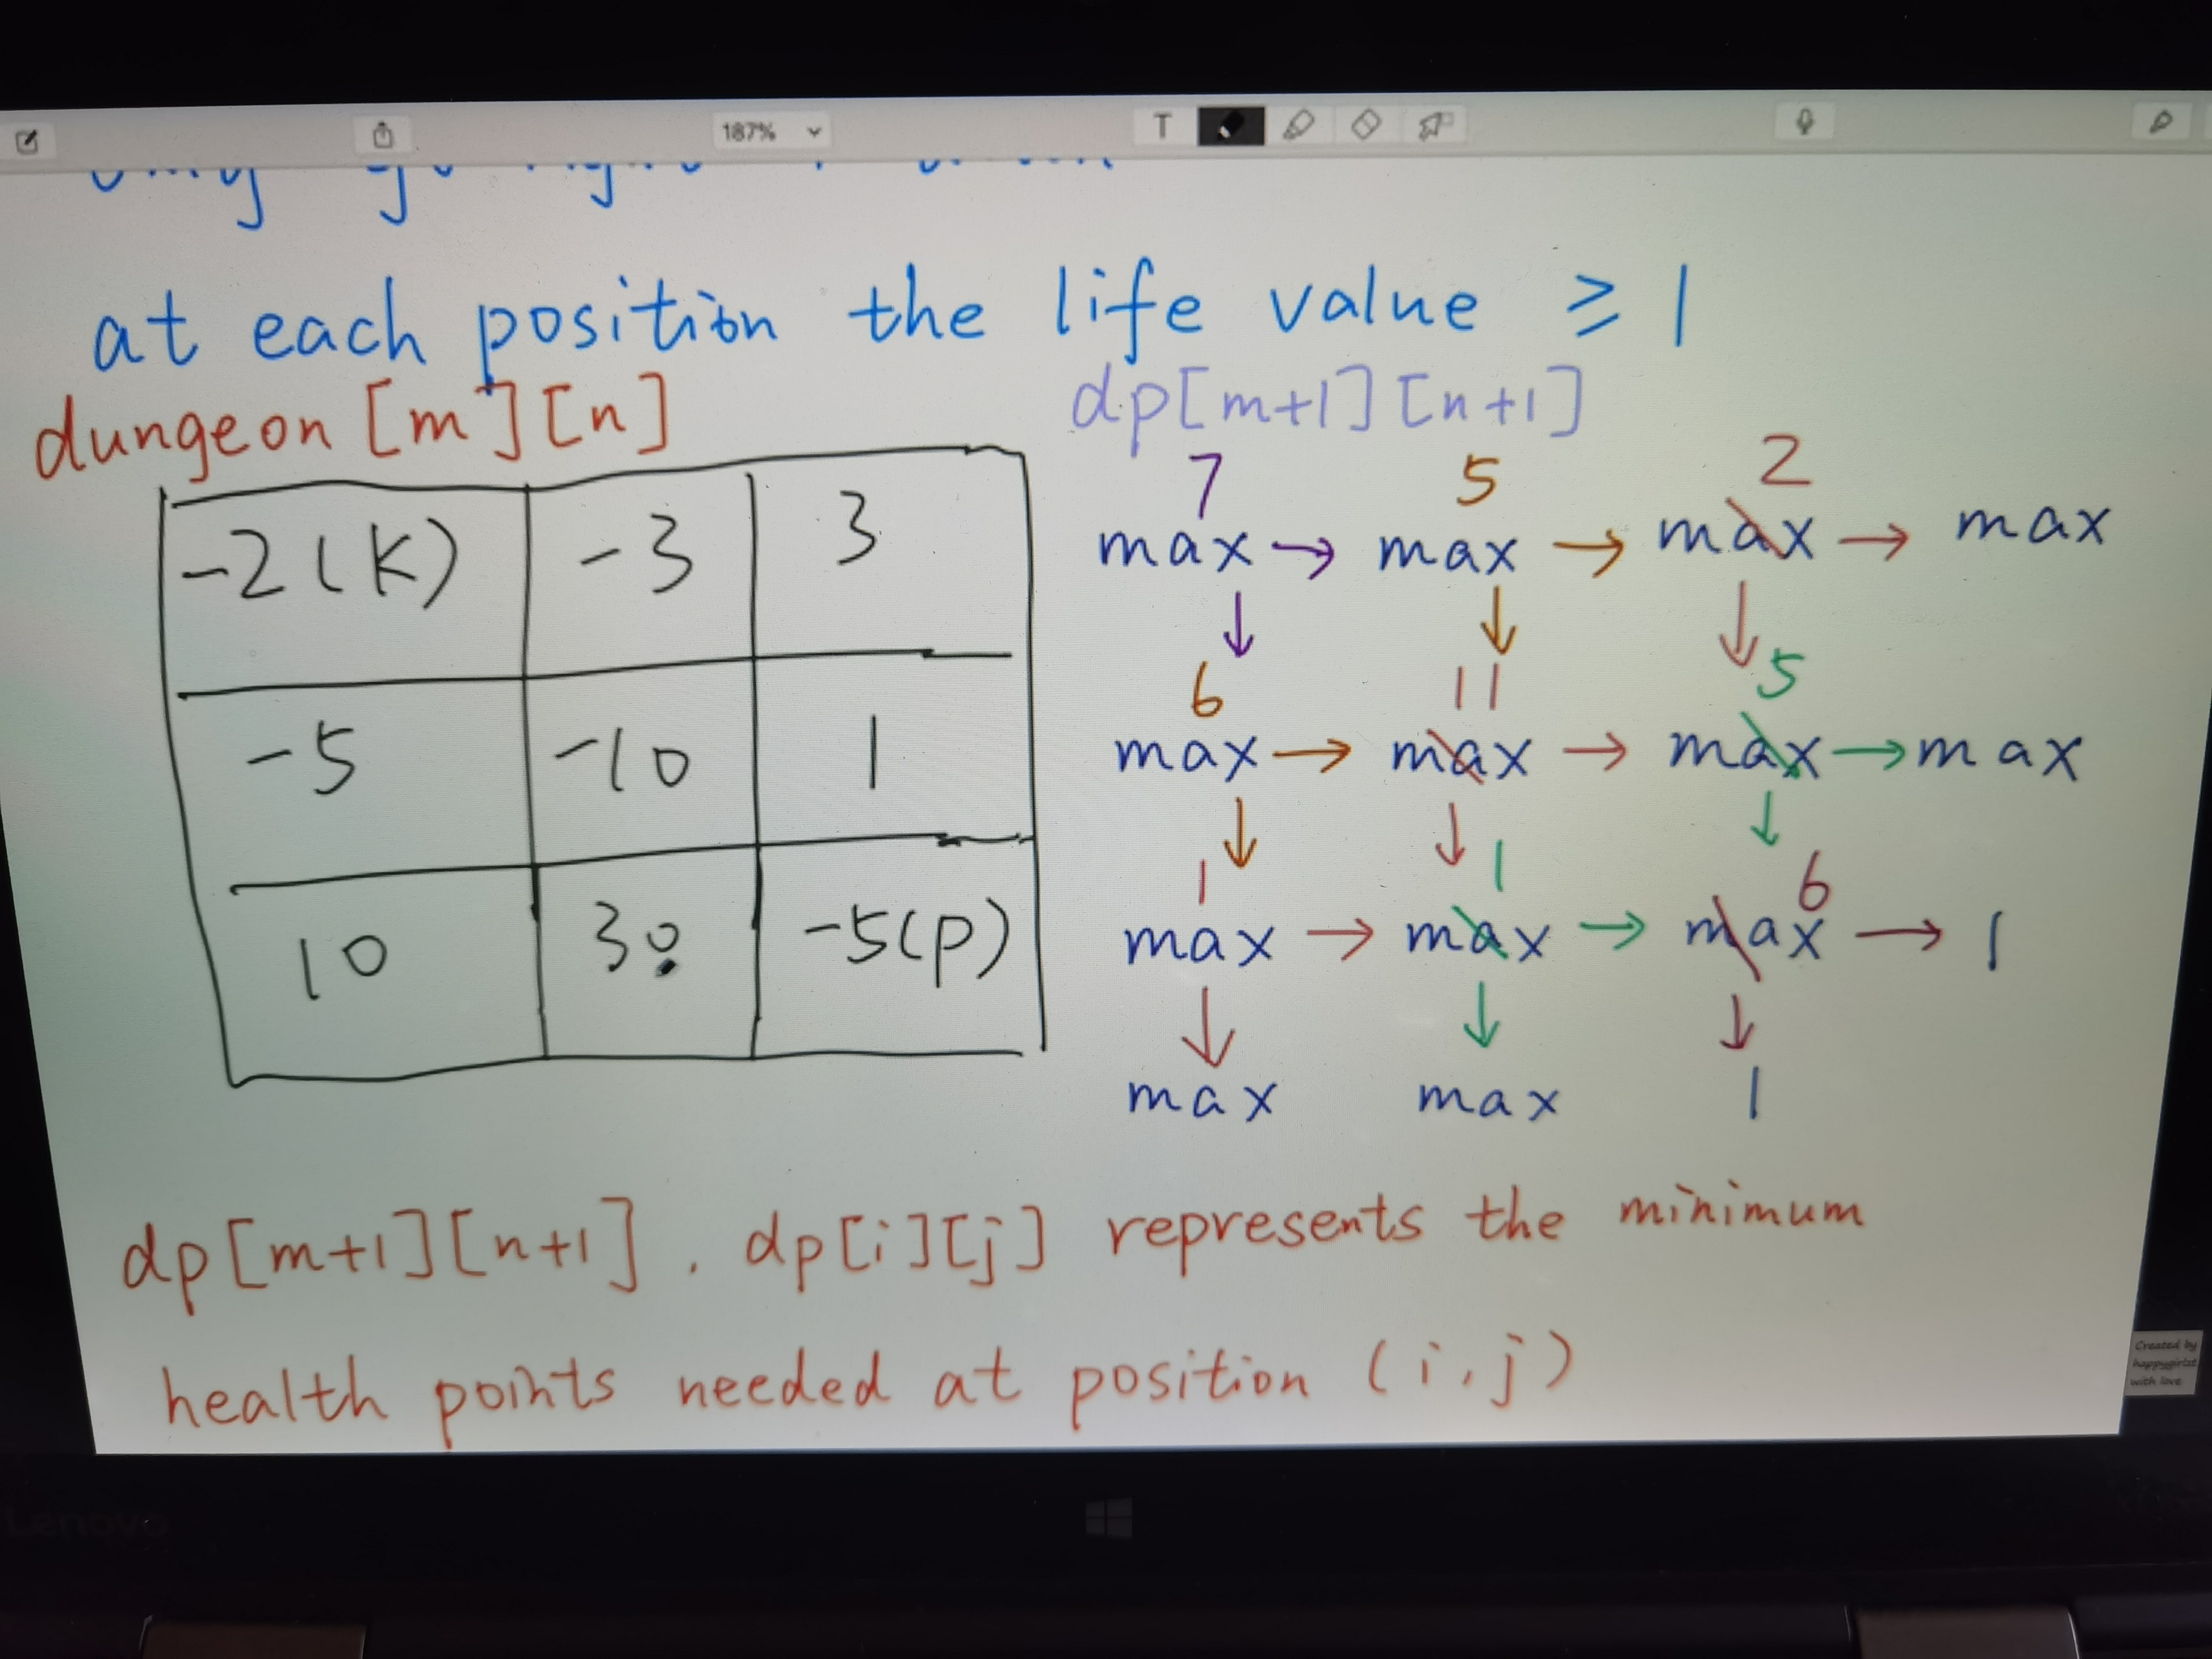 187% T
at each position the life value ≥ 1
dungeon [m][n]
dp[m+1][n+1]
-2(K) -3 3
-5 -10 1
10 30 -5(p)
7 5 2
max → max → max → max
↓ ↓ ↓
6 11 5
max → max → max → max
↓ ↓ ↓
1 1 6
max → max → max → 1
↓ ↓ ↓
max max 1
dp[m+1][n+1] . dp[i][j] represents the minimum
health points needed at position (i,j)
Created by
happygirlzt
with love
Lenovo